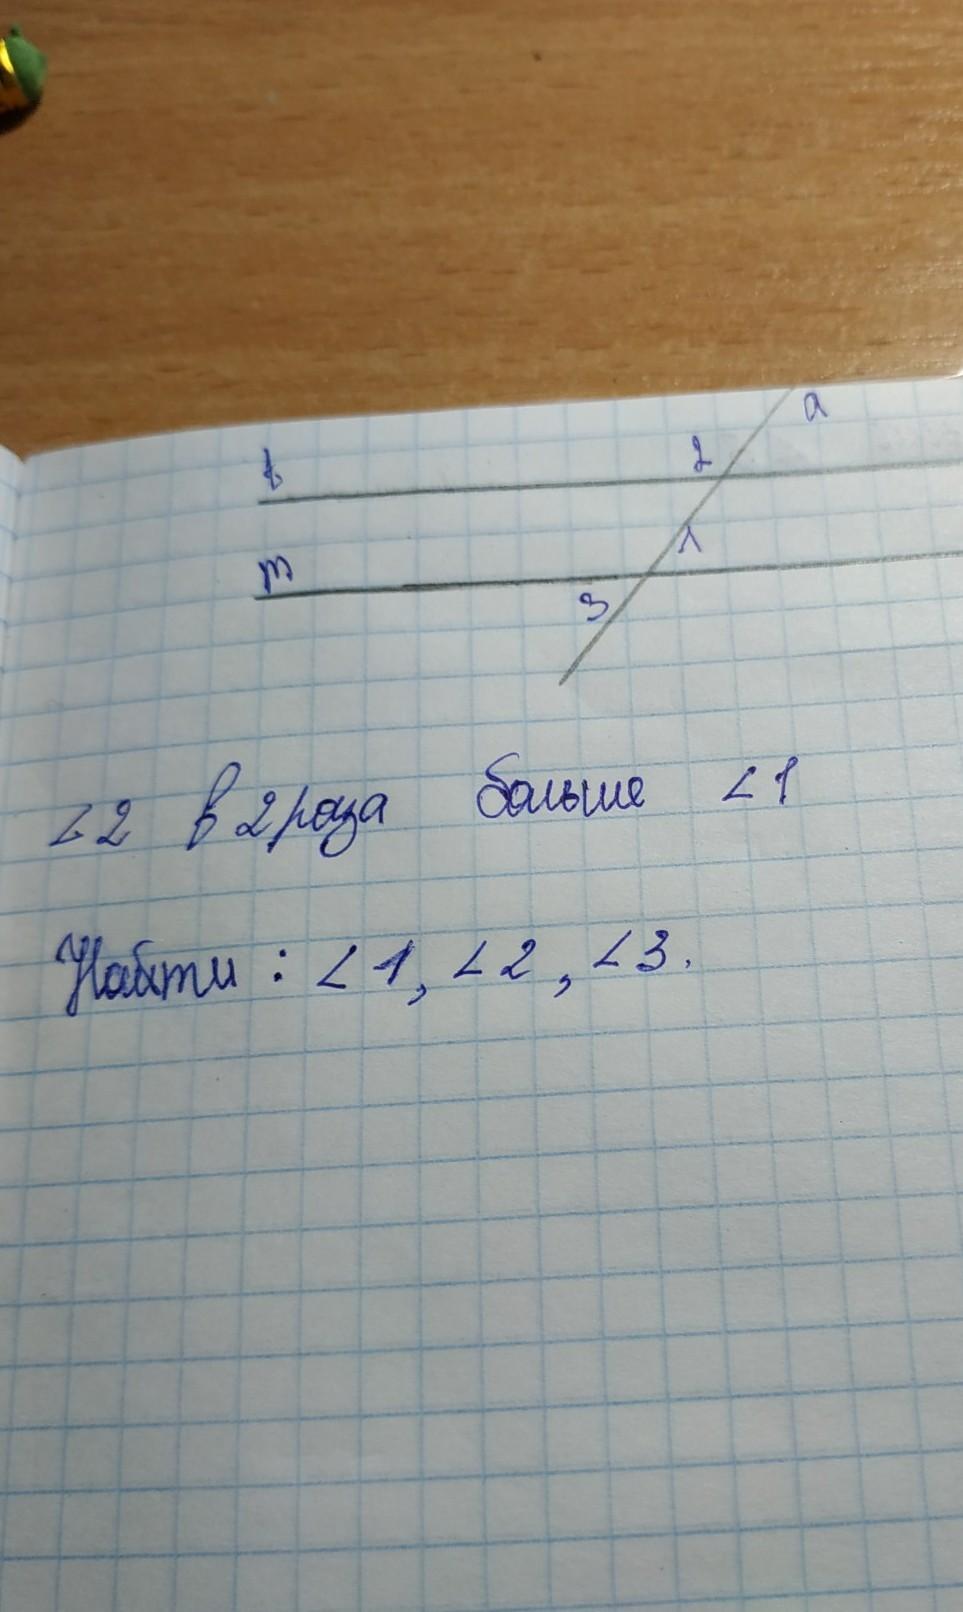 a
b 2
m 1
3
∠2 в 2 раза больше ∠1
Найти : ∠1, ∠2, ∠3.